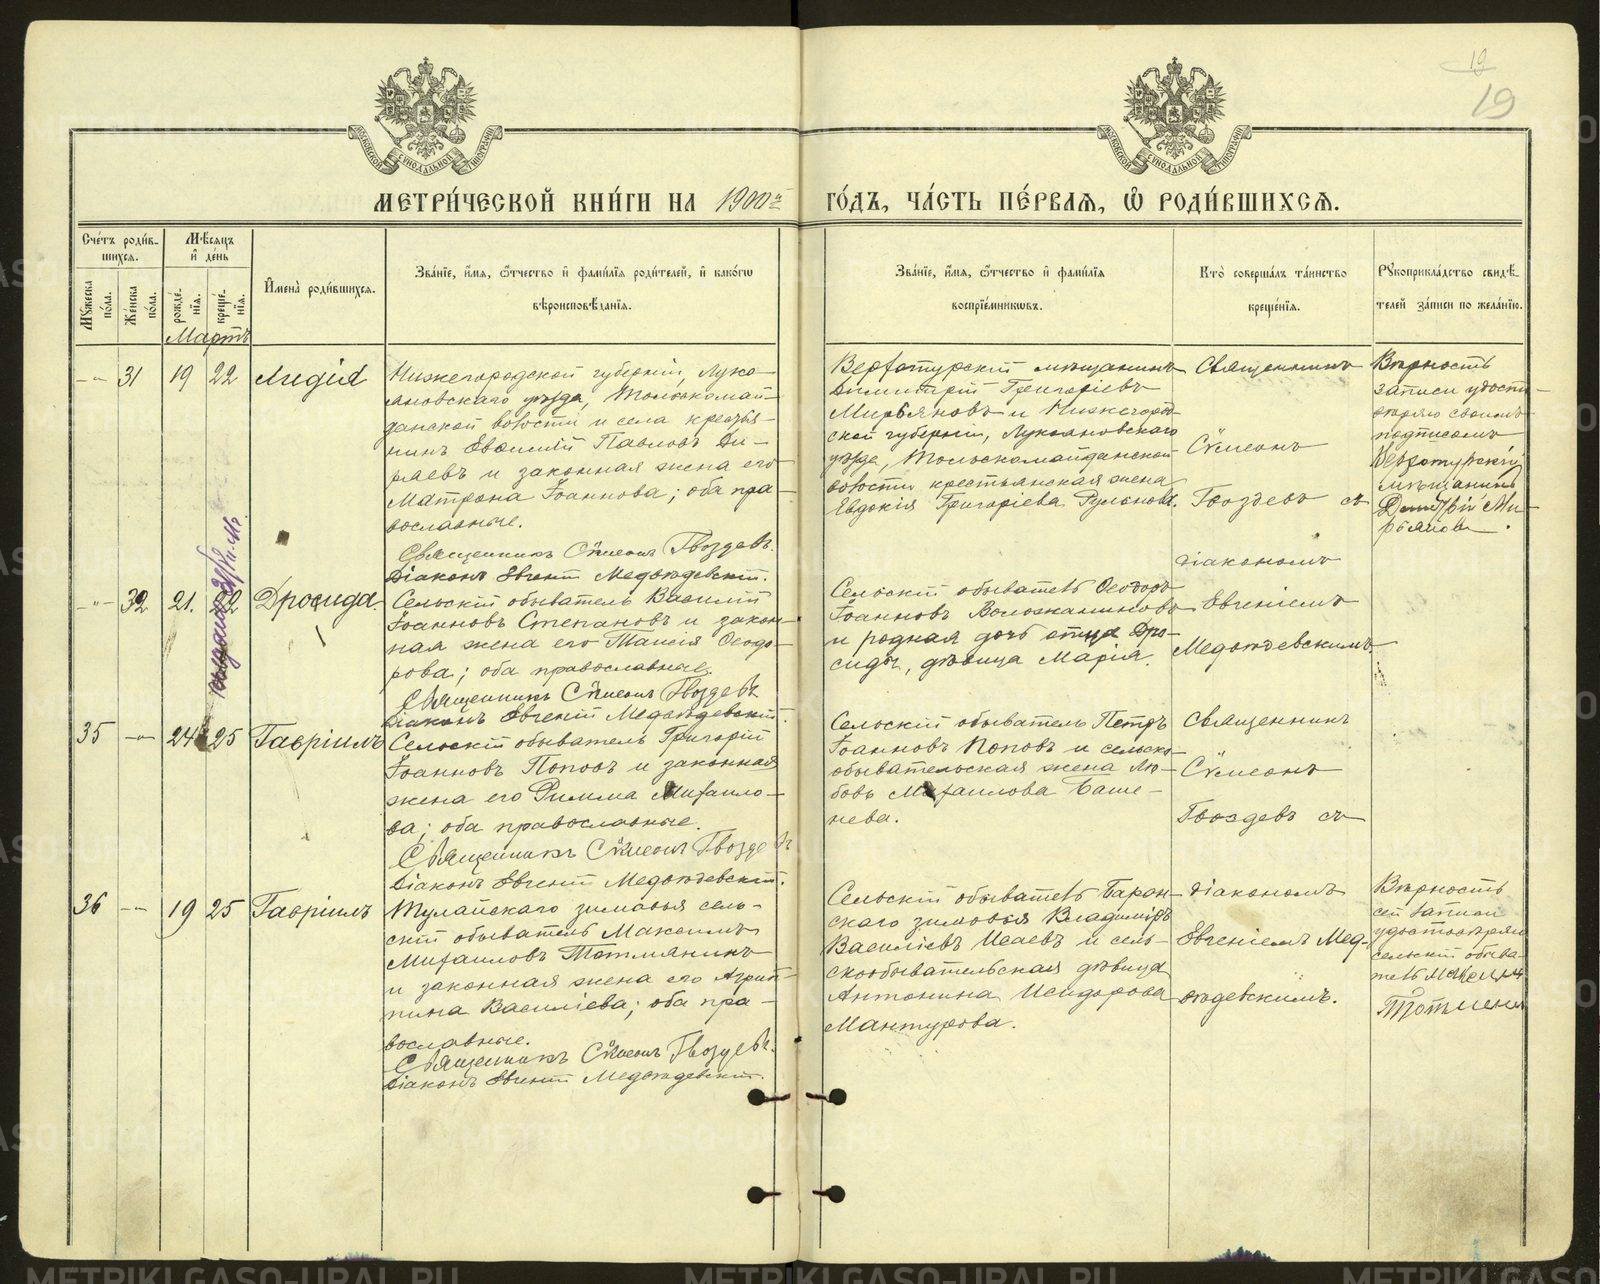 19
19
МОСКОВСКОЙ СѴНОДАЛЬНОЙ ТИПОГРАФІИ
МОСКОВСКОЙ СѴНОДАЛЬНОЙ ТИПОГРАФІИ
МЕТРИ́ЧЕСКОЙ КНИ́ГИ НА 1900й ГО́ДЪ, ЧА́СТЬ ПЕ́РВАѦ, Ѡ РОДИ́ВШИХСѦ.
Счетъ родив-
шихся.
Мѣсяцъ
и день
Мужеска пола.
Женска пола.
рожде-
нія.
креще-
нія.
Имена родившихся.
Званіе, имя, отчество и фамилія родителей, и какогѡ
вѣроисповѣданія.
Званіе, имя, отчество и фамилія
воспріемниковъ.
Кто совершалъ таинство
крещенія.
Рукоприкладство свидѣ-
телей записи по желанію.
Мартъ
-"- 31 19 22 Лидія
Нижегородской губерніи, Луко-
яновскаго уѣзда, Толскомай-
данской волости и села кресть-
янинъ Евѳимій Павловъ
и законная жена его
Матрона Іоаннова; оба пра-
вославные.
Священникъ Сѵмеонъ Гвоздевъ.
Діаконъ Евгеній Медвѣдевскій.
Верхотурскій мѣщанинъ
Димитрій Григоріевъ
Мирьяновъ и Нижегород-
ской губерніи, Лукояновскаго
уѣзда, Толскомайданской
волости крестьянская жена
Евдокія Григоріева
Священникъ
Сѵмеонъ
Гвоздевъ съ
діакономъ
Евгеніемъ
Медвѣдевскимъ
Вѣрность
записи удосто-
вѣряю своимъ
подписомъ
Верхотурскій
мѣщанинъ
Димитрій Ми-
рьяновъ.
-"- 32 21. 22 Дросида.
Сельскій обыватель Василій
Іоанновъ Степановъ и закон-
ная жена его Таисія Ѳеодо-
рова; оба православные.
Священникъ Сѵмеонъ Гвоздевъ
Діаконъ Евгеній Медвѣдевскій.
Сельскій обыватель Ѳеодоръ
Іоанновъ Воложаниновъ
и родная дочь отца Дро-
сиды, дѣвица Марія.
35 -"- 24 25 Гавріилъ
Сельскій обыватель Григорій
Іоанновъ Поповъ и законная
жена его Римма Михаило-
ва; оба православные.
Священникъ Сѵмеонъ Гвоздевъ
Діаконъ Евгеній Медвѣдевскій.
Сельскій обыватель Петръ
Іоанновъ Поповъ и сельско-
обывательская жена Лю-
бовь Михаилова Баше-
нева.
Священникъ
Сѵмеонъ
Гвоздевъ съ
діакономъ
Евгеніемъ Мед-
вѣдевскимъ.
36 -"- 19 25 Гавріилъ
Тулайскаго зимовья сель-
скій обыватель Максимъ
Михаиловъ Тотмянинъ
и законная жена его Агрип-
пина Василіева; оба пра-
вославные.
Священникъ Сѵмеонъ Гвоздевъ.
Діаконъ Евгеній Медвѣдевскій.
Сельскій обыватель Баран-
скаго зимовья Владиміръ
Василіевъ Исаевъ и сель-
скообывательская дѣвица
Антонина Исидорова
Мантурова.
Вѣрность
сей записи
удостовѣряю
сельскій обыва-
тель
METRIKI.GASO-URAL.RU